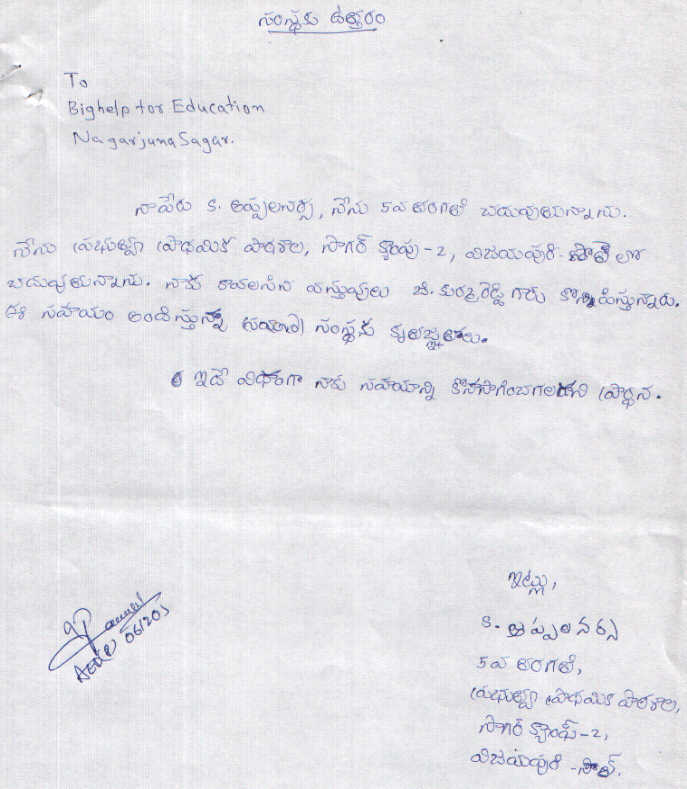 సంస్థకు ఉత్తరం
To
Bighelp for Education
Nagarjuna Sagar.
నాపేరు కె. అప్పలనర్స, నేను 5వ తరగతి చదువుతున్నాను.
నేను ప్రభుత్వ ప్రాథమిక పాఠశాల, సాగర్ క్యాంపు-2, విజయపురి సౌత్ లో
చదువుతున్నాను. నాకు కావలసిన వస్తువులు జి. గారు కొన్నిపిస్తున్నారు.
ఈ సహాయం అందిస్తున్న సంస్థకు కృతజ్ఞతలు.
ఇదే విధంగా నాకు సహాయాన్ని కొనసాగించగలరని ప్రార్థన.
ఇట్లు,
కె. అప్పలనర్స
5వ తరగతి,
ప్రభుత్వ ప్రాథమిక పాఠశాల,
సాగర్ క్యాంప్-2,
విజయపురి - సౌత్.